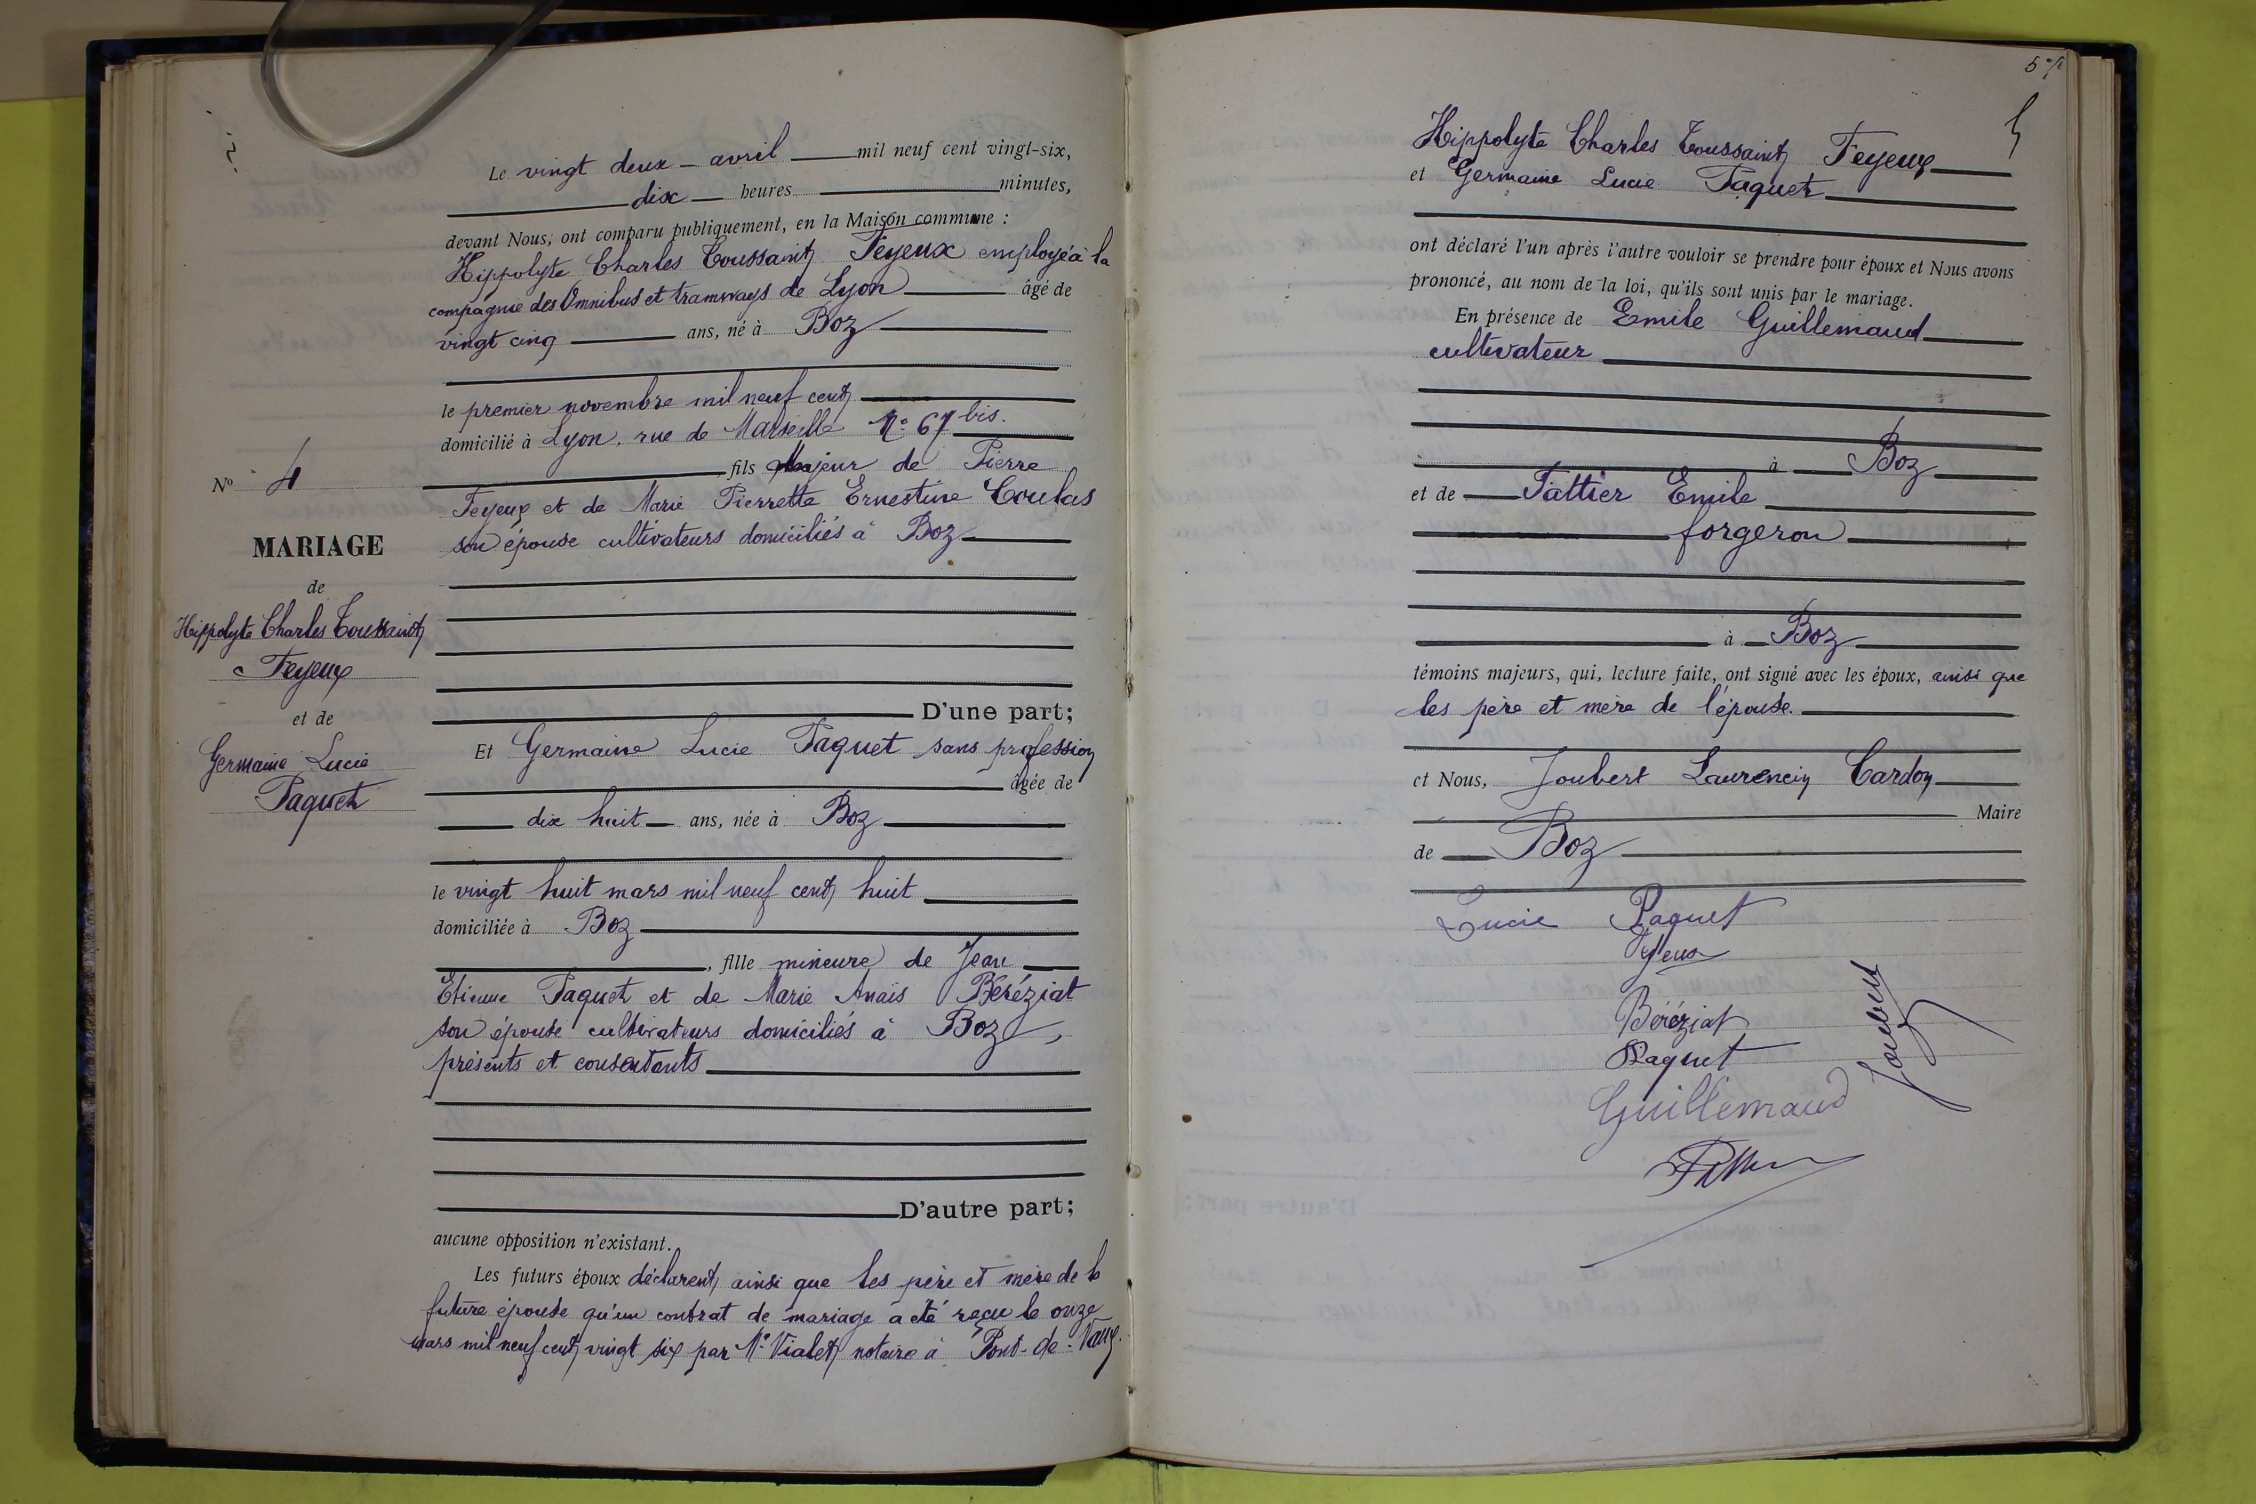 Le vingt deux avril mil neuf cent vingt-six,
dix heures minutes,
devant Nous, ont comparu publiquement, en la Maison commune :
Hippolyte Charles Toussaint Feyeux employé à la
compagnie des Omnibus et tramways de Lyon âgé de
vingt cinq ans, né à Boz
le premier novembre mil neuf cent
domicilié à Lyon, rue de Marseille No 67 bis.
fils majeur de Pierre
Feyeux et de Marie Pierrette Ernestine Coulas
son épouse cultivateurs domiciliés à Boz
No 4
MARIAGE
de
Hippolyte Charles Toussaint
Feyeux
et de
Germaine Lucie
Paquet
D'une part;
Et Germaine Lucie Paquet sans profession
âgée de
dix huit ans, née à Boz
le vingt huit mars mil neuf cent huit
domiciliée à Boz
, fille mineure de Jean
Etienne Paquet et de Marie Anaïs Béréziat
son épouse cultivateurs domiciliés à Boz,
présents et consentants
D'autre part;
aucune opposition n'existant.
Les futurs époux déclarent, ainsi que les père et mère de la
future épouse qu'un contrat de mariage a été reçu le onze
mars mil neuf cent vingt six par Me Vialet, notaire à Pont-de-Vaux.
5
Hippolyte Charles Toussaint Feyeux
et Germaine Lucie Paquet
ont déclaré l'un après l'autre vouloir se prendre pour époux et Nous avons
prononcé, au nom de la loi, qu'ils sont unis par le mariage.
En présence de Emile Guillemaud
cultivateur
à Boz
et de Pattier Emile
forgeron
à Boz
témoins majeurs, qui, lecture faite, ont signé avec les époux, ainsi que
les père et mère de l'épouse.
et Nous, Joubert Laurencin Cardon
Maire
de Boz
Lucie Paquet
Feyeux
Béréziat
Paquet
Joubert
Guillemaud